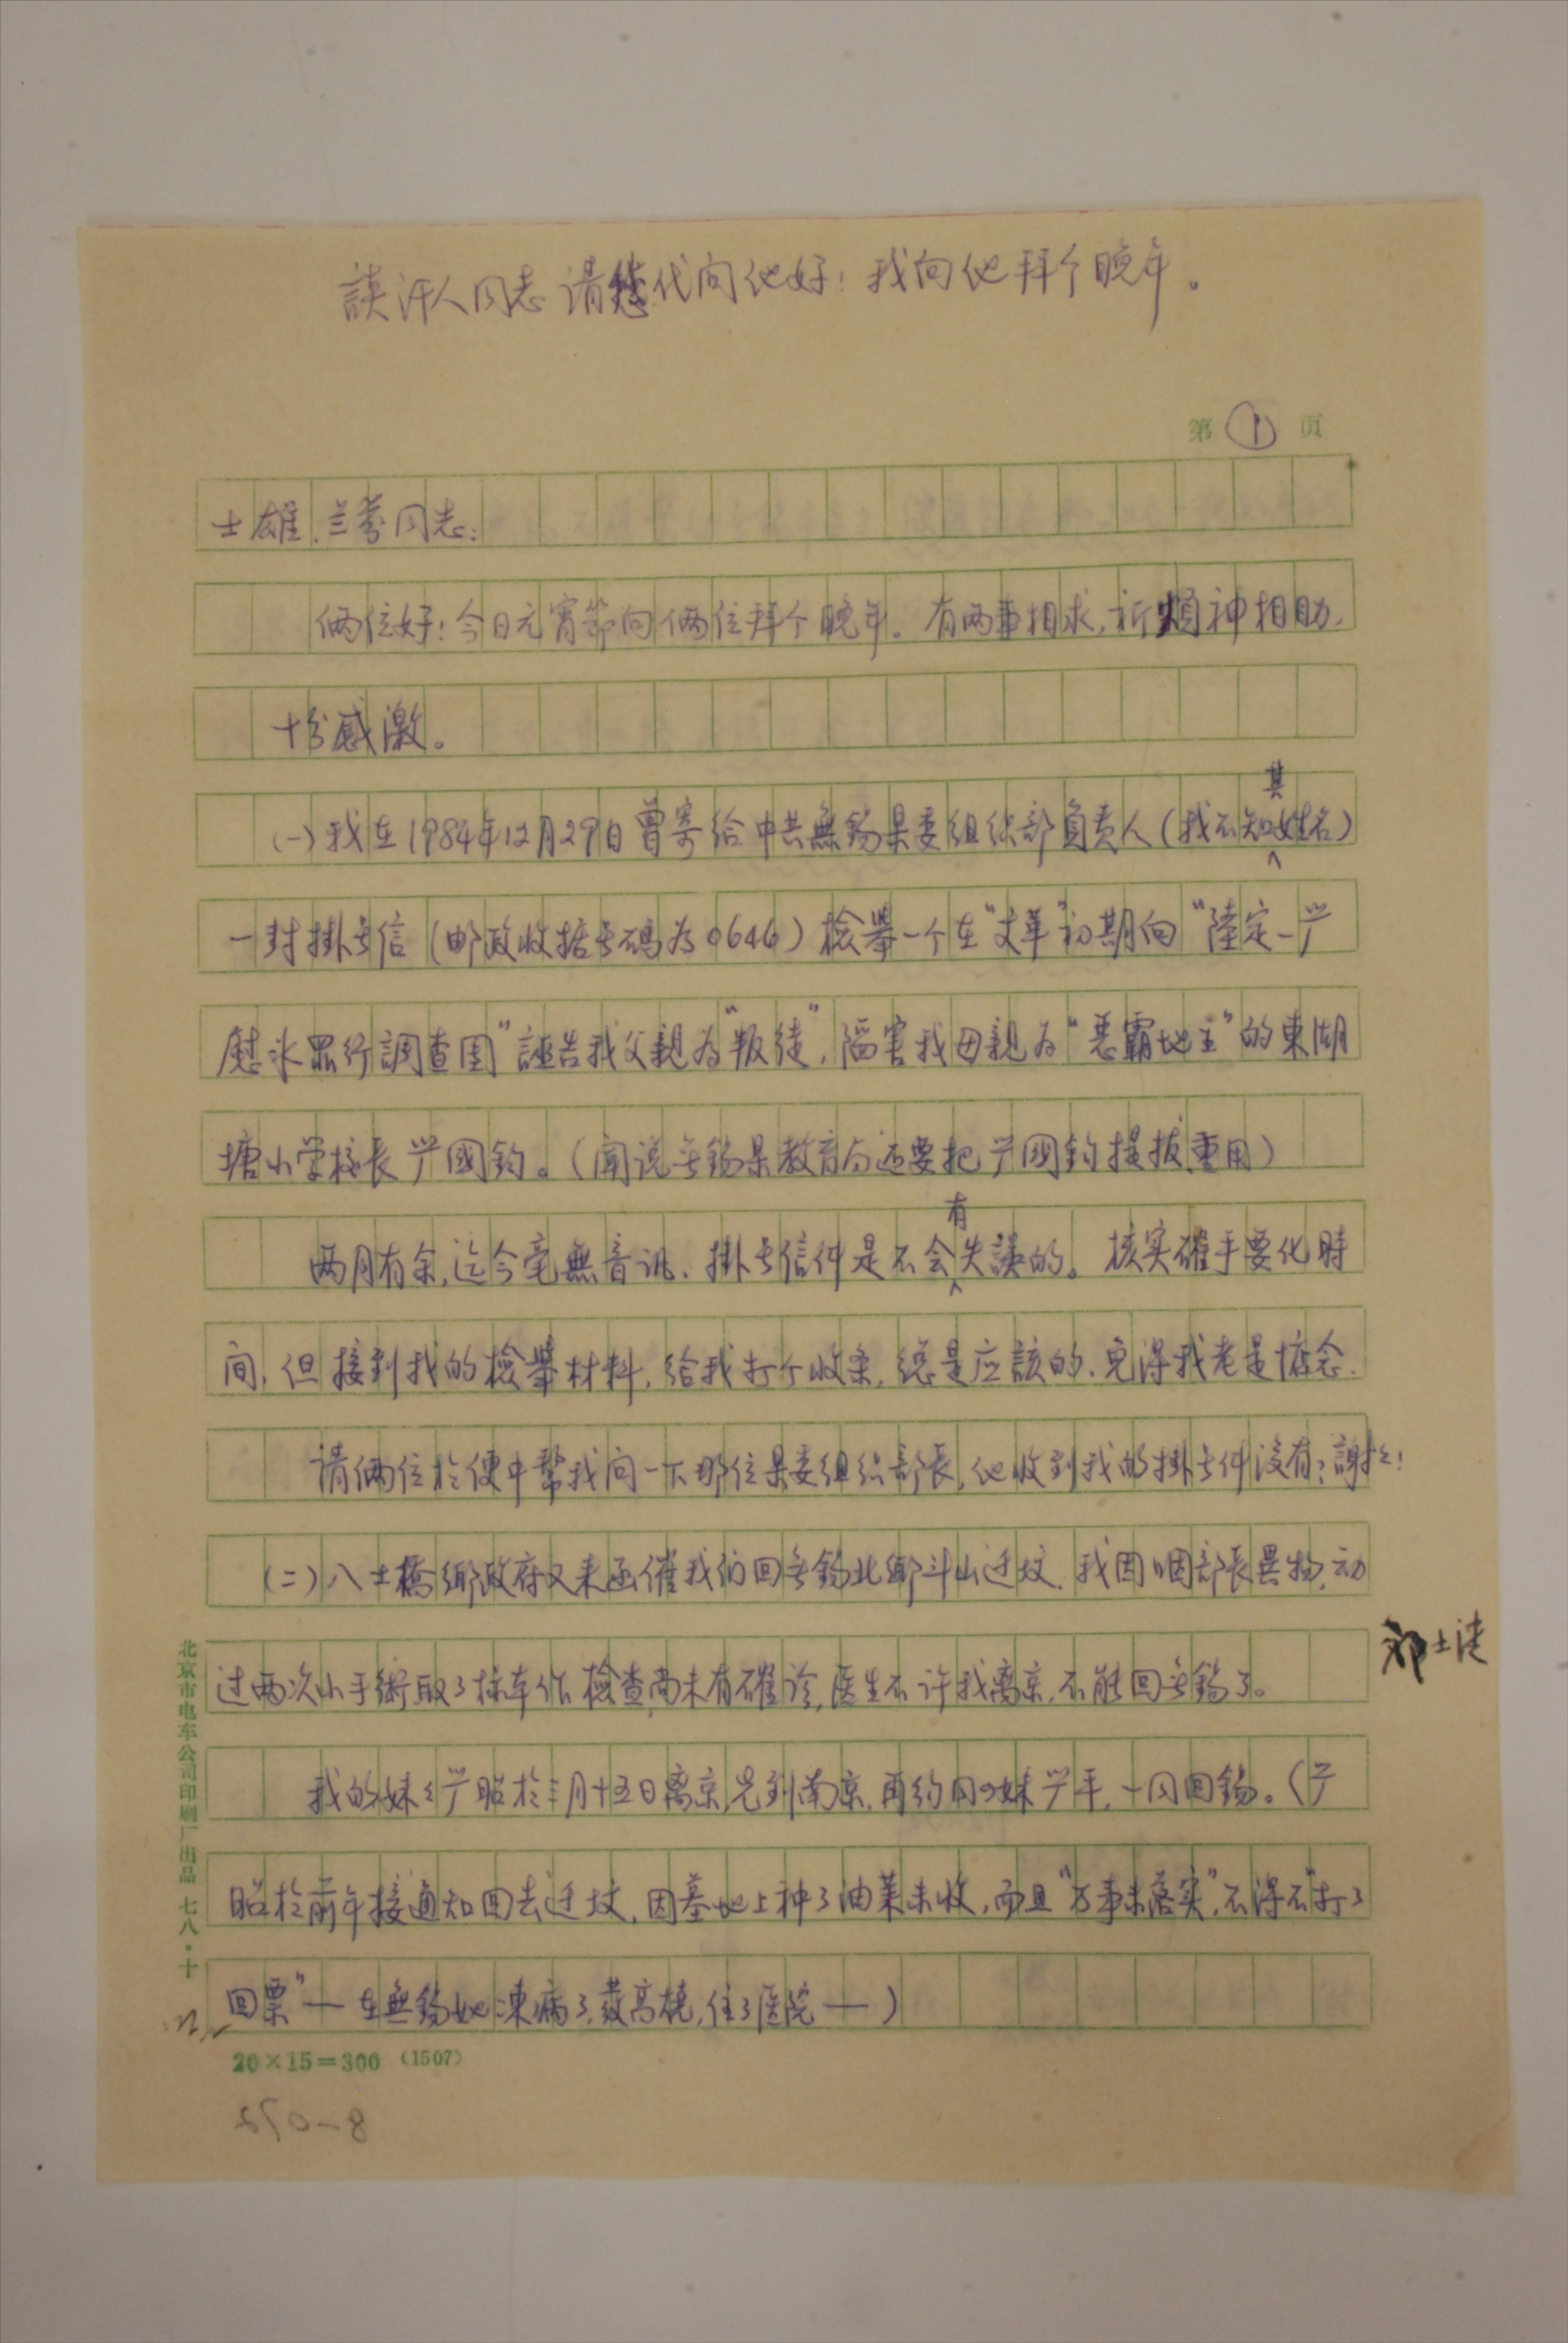 談汗人同志请您代问他好！我向他拜个晚年。
第 1 页
士雄、兰芬同志：
俩位好！今日元宵節向俩位拜个晚年。有两事相求，祈煩神相助，
十分感激。
(一)我在1984年12月29日曾寄给中共無錫县委组织部負责人(我不知其姓名)
一封掛号信(邮政收据号碼为0646)檢舉一个在"文革"初期向"陸定一严
慰冰罪行調查团"誣告我父親为"叛徒"，陷害我母親为"恶霸地主"的東湖
塘小学校長严國鈞。(聞说无錫县教育局还要把严國鈞提拔重用)
两月有余，迄今毫無音讯、掛号信件是不会有失誤的。核实確乎要化時
间，但接到我的檢舉材料，给我打个收条，總是应該的，免得我老是惦念。
请俩位於便中幫我问一下那位县委组织部長，他收到我的掛号件没有？謝謝！
(二)八士橋鄉政府又来函催我们回无錫北鄉斗山迁坟，我因咽部長異物，动
过两次小手術取了标本作檢查，尚未有確诊，医生不许我离京，不能回无錫了。
邓士
我的妹妹严昭於三月十五日离京，先到南京，再约同四妹严平，一同回錫。(严
昭於前年接通知回去迁坟，因墓地上种了油菜未收，而且"万事未落实"，不得不"打了
回票"—在無錫她凍病了，發高燒，住了医院—)
北京市电车公司印刷厂出品 七八·十
20×15=300 (1507)